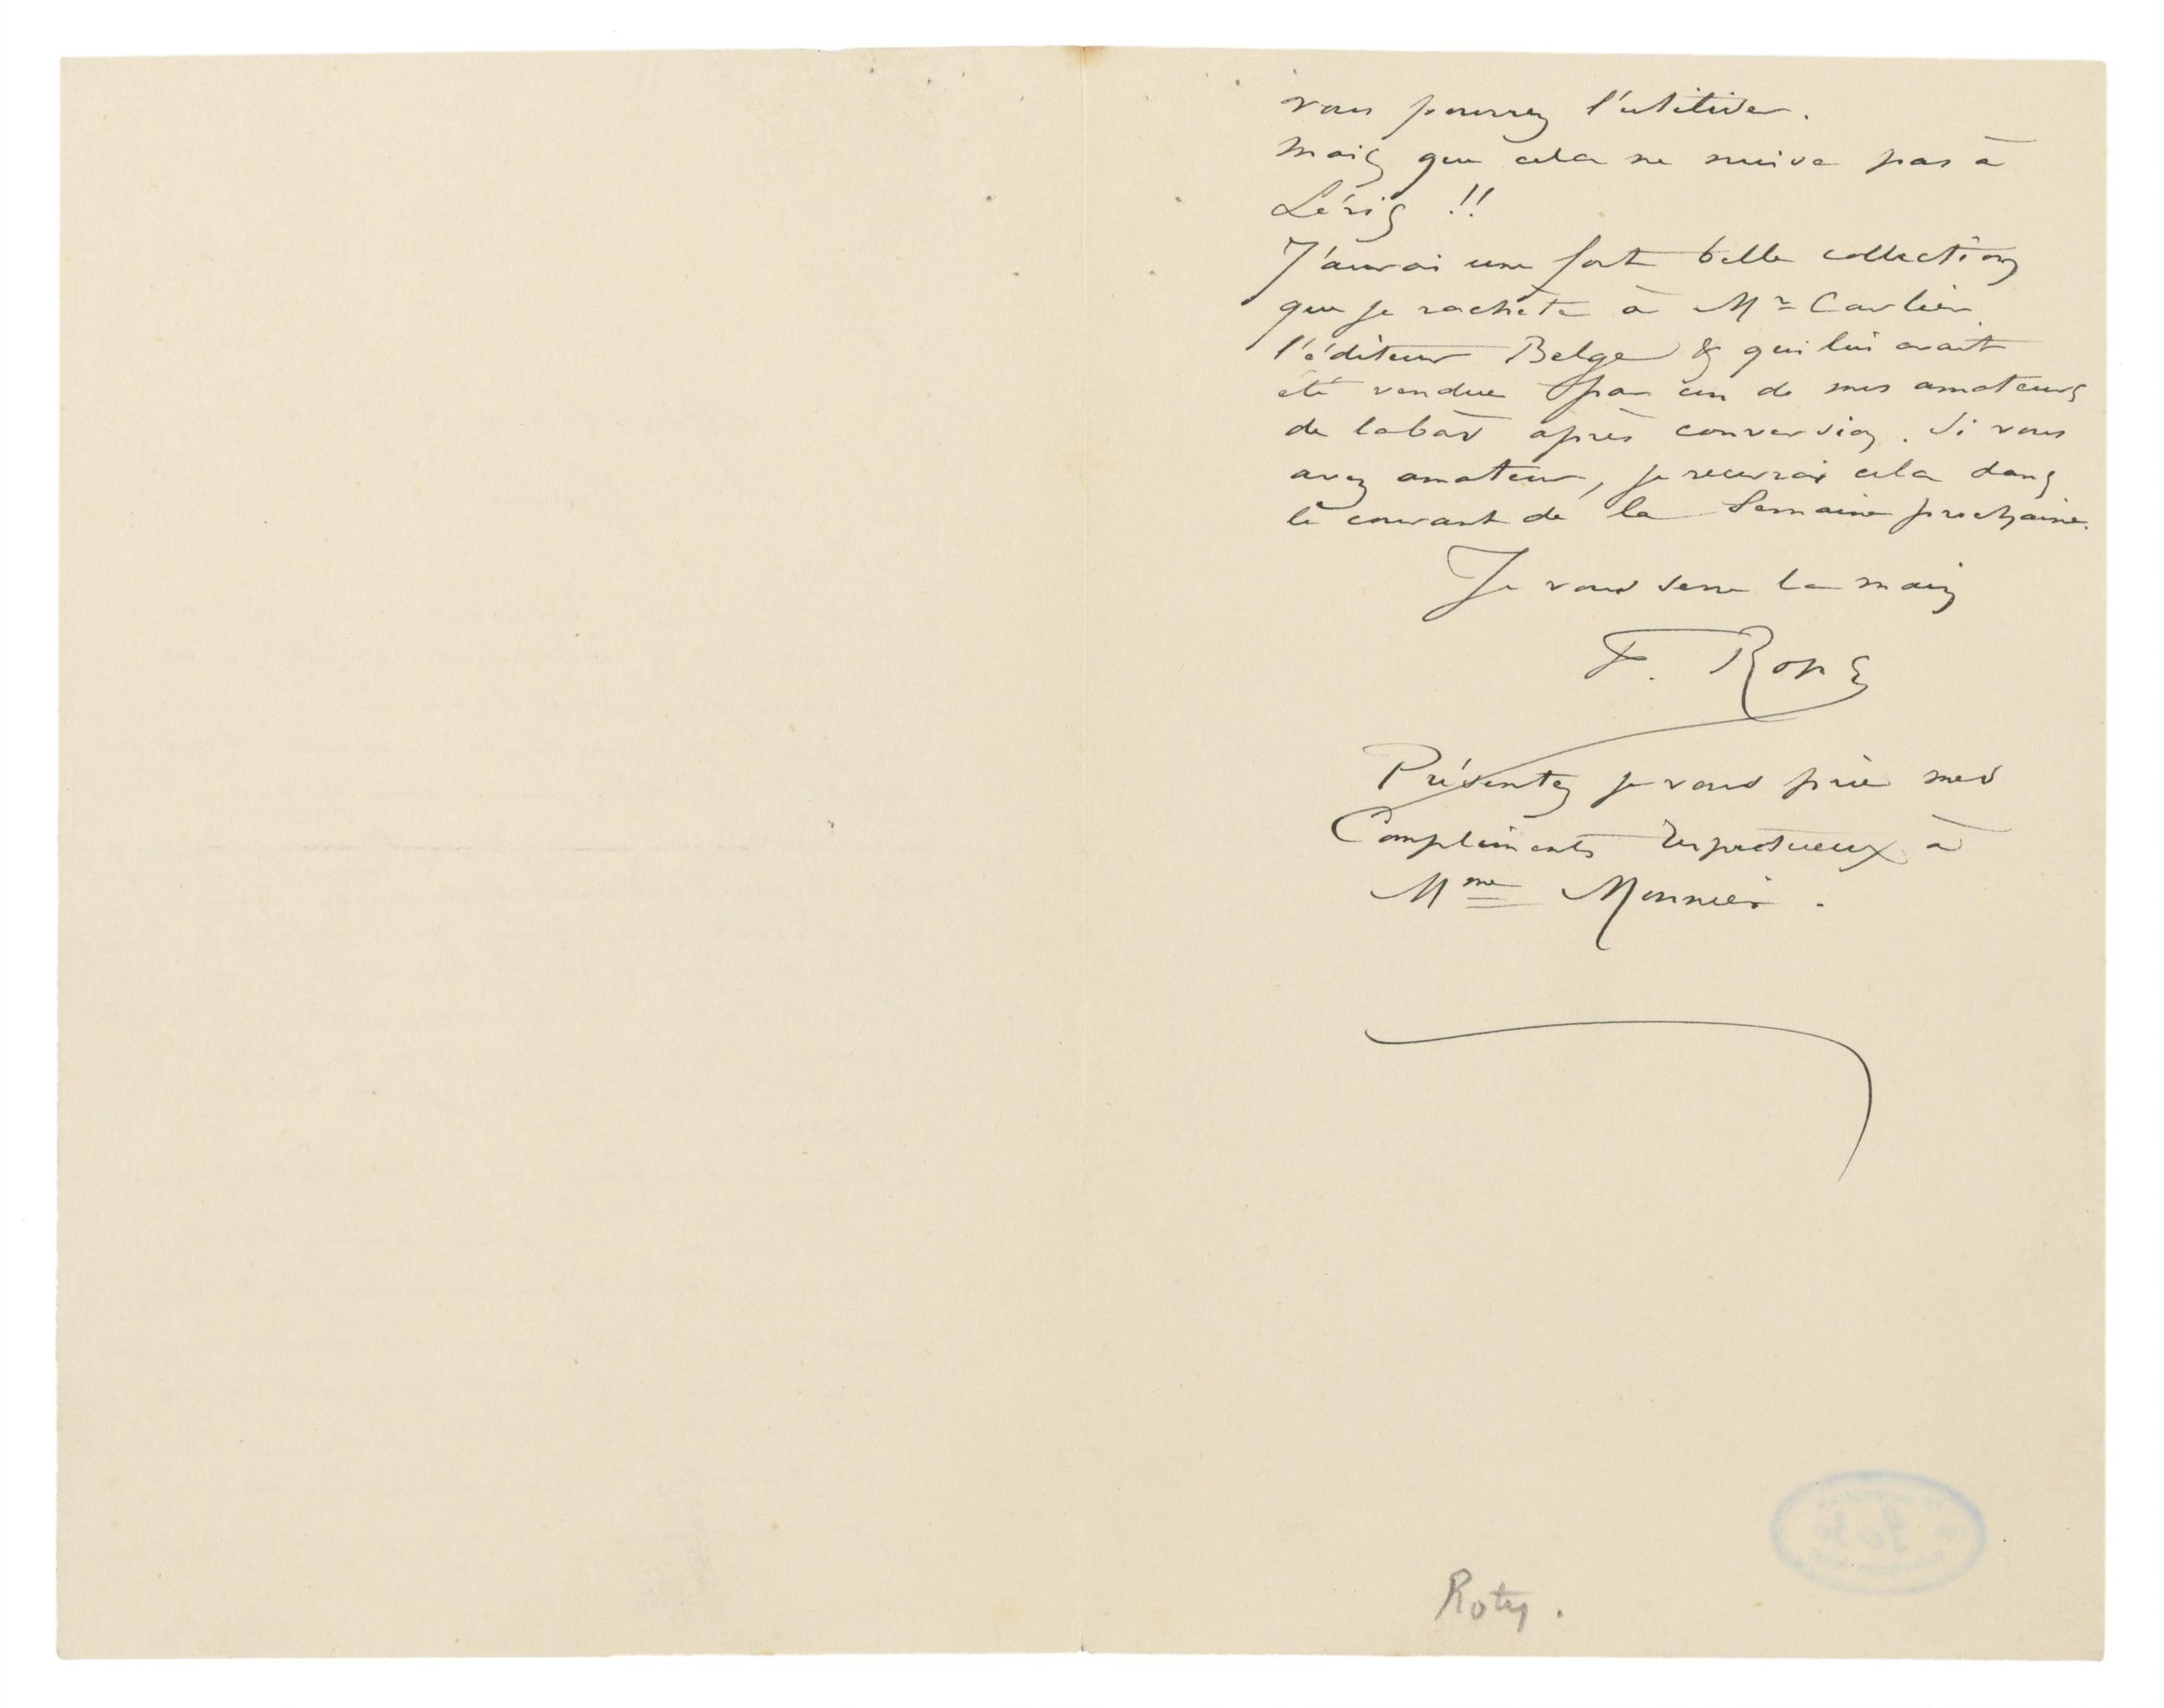 vous pourrez l'utiliser.
Mais que cela ne nuise pas à
Léris !!
J'aurai une fort belle collection
que je rachète à Mr Carlier
l'éditeur Belge & qui lui avait
été vendue par un de mes amateurs
de labàs après conversion. Si vous
avez amateur, je recevrai cela dans
le courant de la Semaine prochaine.
Je vous serre la main
F. Rops
Présentez je vous prie mes
Compliments respectueux à
Mme Monnier.